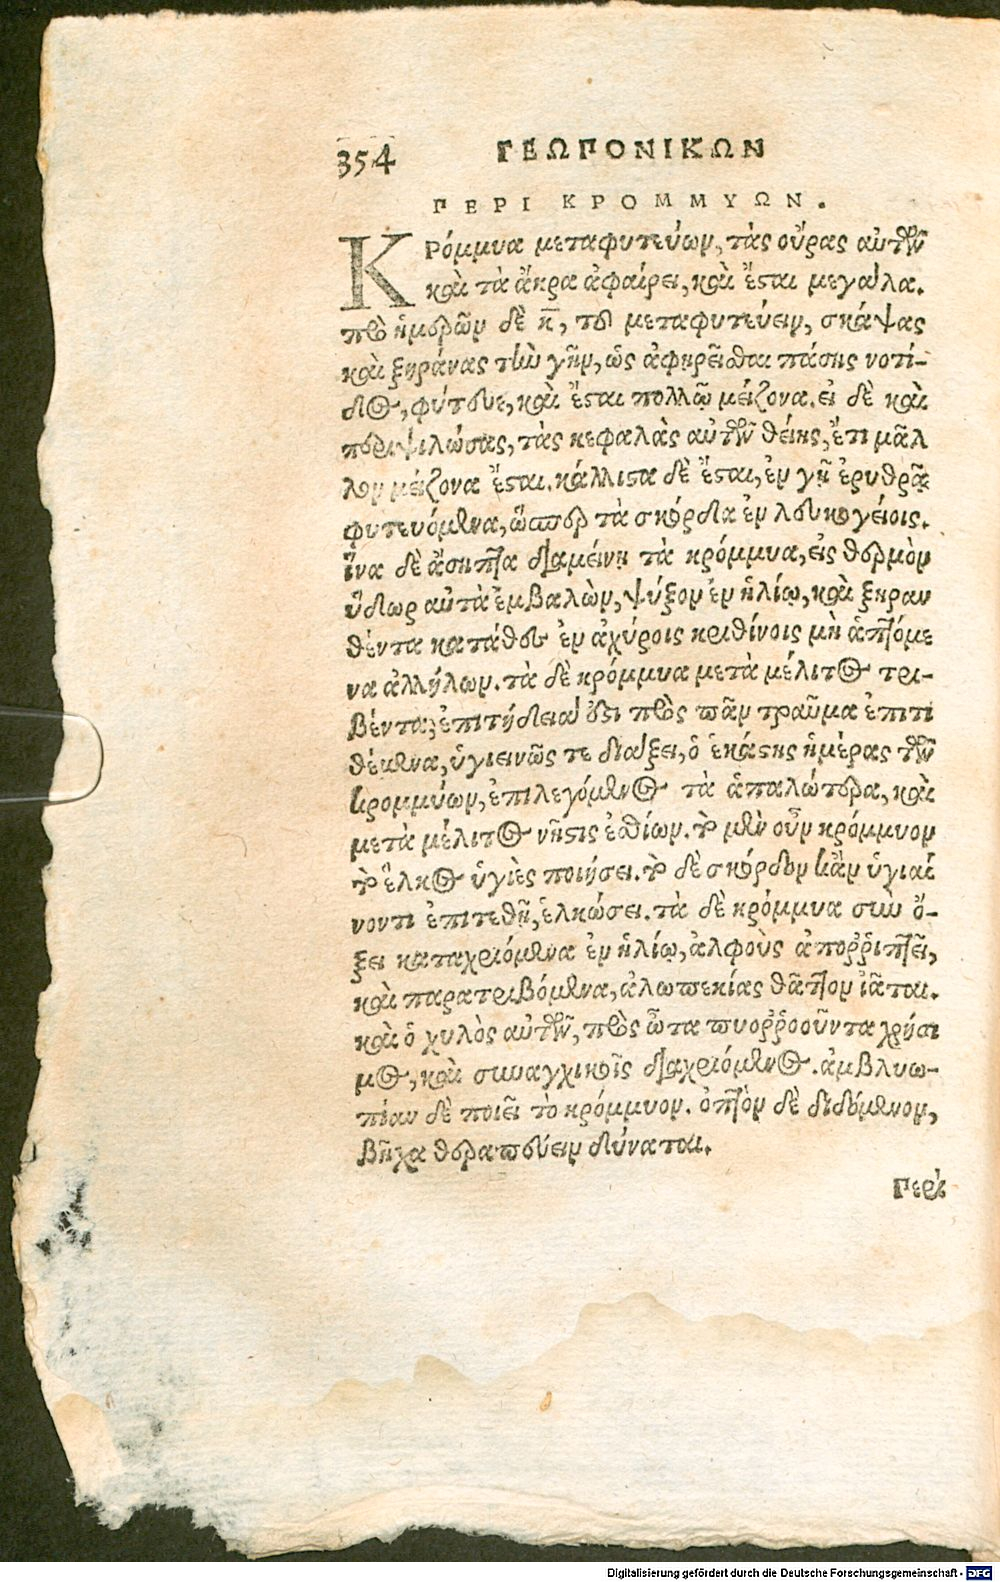 354 ΓΕΩΠΟΝΙΚΩΝ
ΠΕΡΙ ΚΡΟΜΜΥΩΝ.
ΚΡόμμυα μεταφυτεύων, τὰς οὔρας αὐτῶν
καὶ τὰ ἄκρα ἀφαίρει, καὶ ἔσται μεγάλα.
πρὸ ἡμερῶν δὲ κ̄, τοῦ μεταφυτεύειν, σκάψας
καὶ ξηράνας τὴν γῆν, ὡς ἀφηρεῖσθαι πάσης νοτί-
δος, φύτευε, καὶ ἔσται πολλῷ μείζονα. εἰ δὲ καὶ
περιψιλώσας, τὰς κεφαλὰς αὐτῶν θείης, ἔτι μᾶλ
λον μείζονα ἔσται. κάλλιστα δὲ ἔσται, ἐν γῇ ἐρυθρᾷ
φυτευόμενα, ὥσπερ τὰ σκόρδα ἐν λευκογείοις.
ἵνα δὲ ἄσηπτα διαμείνῃ τὰ κρόμμυα, εἰς θερμὸν
ὕδωρ αὐτὰ ἐμβαλὼν, ψύξον ἐν ἡλίῳ, καὶ ξηραν
θέντα κατάθου ἐν ἀχύροις κριθίνοις μὴ ἁπτόμε
να ἀλλήλων. τὰ δὲ κρόμμυα μετὰ μέλιτος τρι-
βέντα, ἐπιτήδειά ἐστι πρὸς πᾶν τραῦμα ἐπιτι
θέμενα, ὑγιεινῶς τε διάξει, ὁ ἑκάστης ἡμέρας τῶν
κρομμύων, ἐπιλεγόμενος τὰ ἁπαλώτερα, καὶ
μετὰ μέλιτος νῆστις ἐσθίων. τὸ μὲν οὖν κρόμμυον
τὸ ἕλκος ὑγιὲς ποιήσει. τὸ δὲ σκόρδον κἂν ὑγιαί
νοντι ἐπιτεθῇ, ἑλκώσει. τὰ δὲ κρόμμυα σὺν ὄ-
ξει καταχριόμενα ἐν ἡλίῳ, ἀλφοὺς ἀποῤῥιπτεῖ,
καὶ παρατριβόμενα, ἀλωπεκίας θᾶττον ἰᾶται.
καὶ ὁ χυλὸς αὐτῶν, πρὸς ὦτα πυοῤῥοοῦντα χρήσι
μος, καὶ συναγχικοῖς διαχριόμενος. ἀμβλυω-
πίαν δὲ ποιεῖ τὸ κρόμμυον. ὀπτὸν δὲ διδόμενον,
βῆχα θεραπεύειν δύναται.
Περὶ
Digitalisierung gefördert durch die Deutsche Forschungsgemeinschaft - DFG